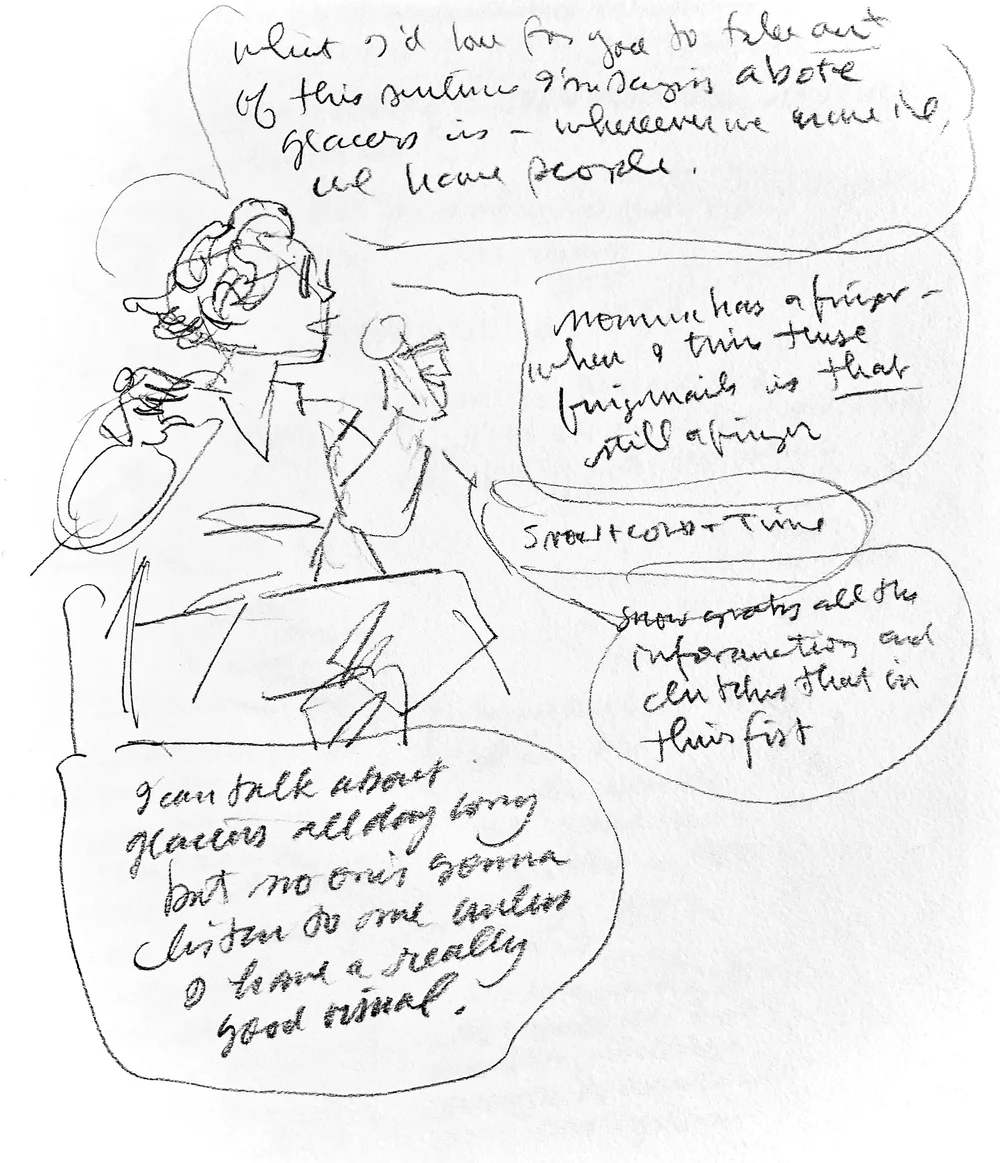 what I'd love for you to take out
of this sentence I'm saying above
glaciers is – wherever we have ice,
we have people.
has a finger –
when I trim these
fingernails is that
still a finger
Snow + cold + Time
Snow grabs all the
information and
clutches that in
this fist
I can talk about
glaciers all day long
but no one's gonna
listen to me unless
I have a really
good visual.